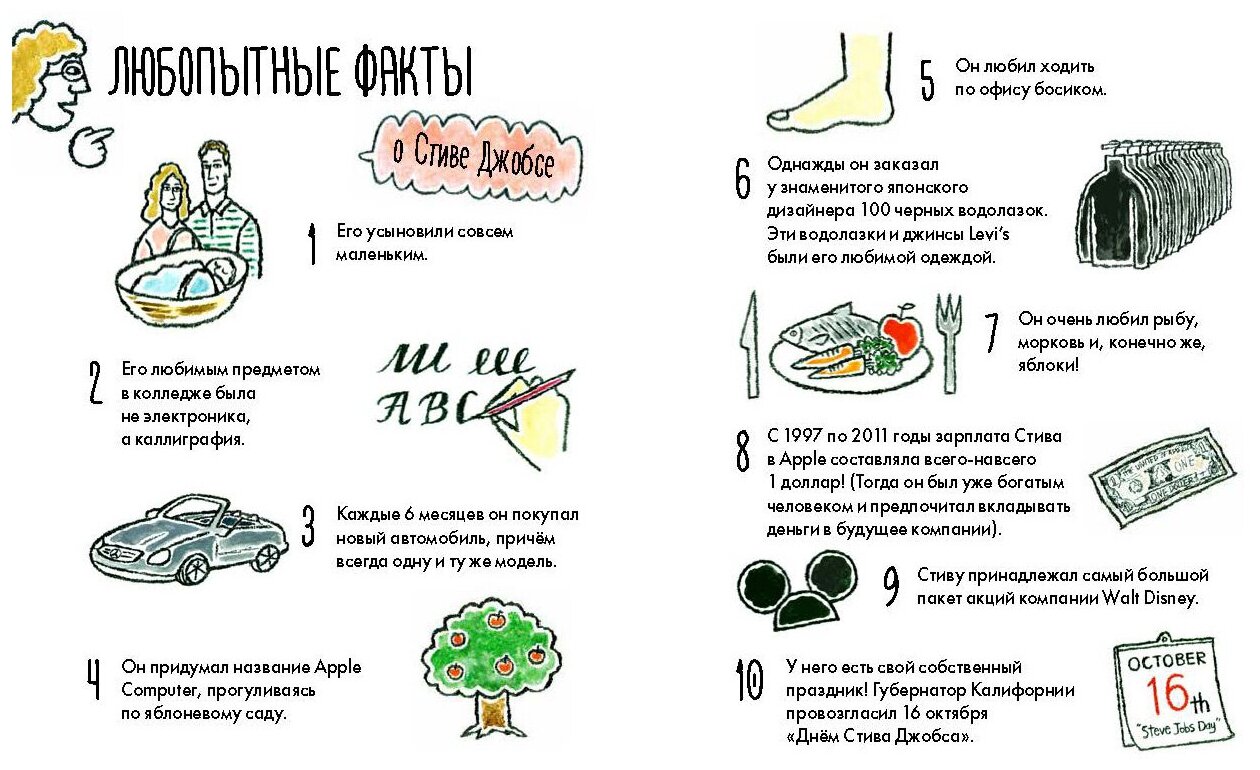 ЛЮБОПЫТНЫЕ ФАКТЫ
о Стиве Джобсе
1 Его усыновили совсем
маленьким.
2 Его любимым предметом
в колледже была
не электроника,
а каллиграфия.
ABC
3 Каждые 6 месяцев он покупал
новый автомобиль, причём
всегда одну и ту же модель.
4 Он придумал название Apple
Computer, прогуливаясь
по яблоневому саду.
5 Он любил ходить
по офису босиком.
6 Однажды он заказал
у знаменитого японского
дизайнера 100 черных водолазок.
Эти водолазки и джинсы Levi’s
были его любимой одеждой.
7 Он очень любил рыбу,
морковь и, конечно же,
яблоки!
8 С 1997 по 2011 годы зарплата Стива
в Apple составляла всего-навсего
1 доллар! (Тогда он был уже богатым
человеком и предпочитал вкладывать
деньги в будущее компании).
ONE
ONE DOLLAR
9 Стиву принадлежал самый большой
пакет акций компании Walt Disney.
10 У него есть свой собственный
праздник! Губернатор Калифорнии
провозгласил 16 октября
«Днём Стива Джобса».
OCTOBER
16th
"Steve Jobs Day"